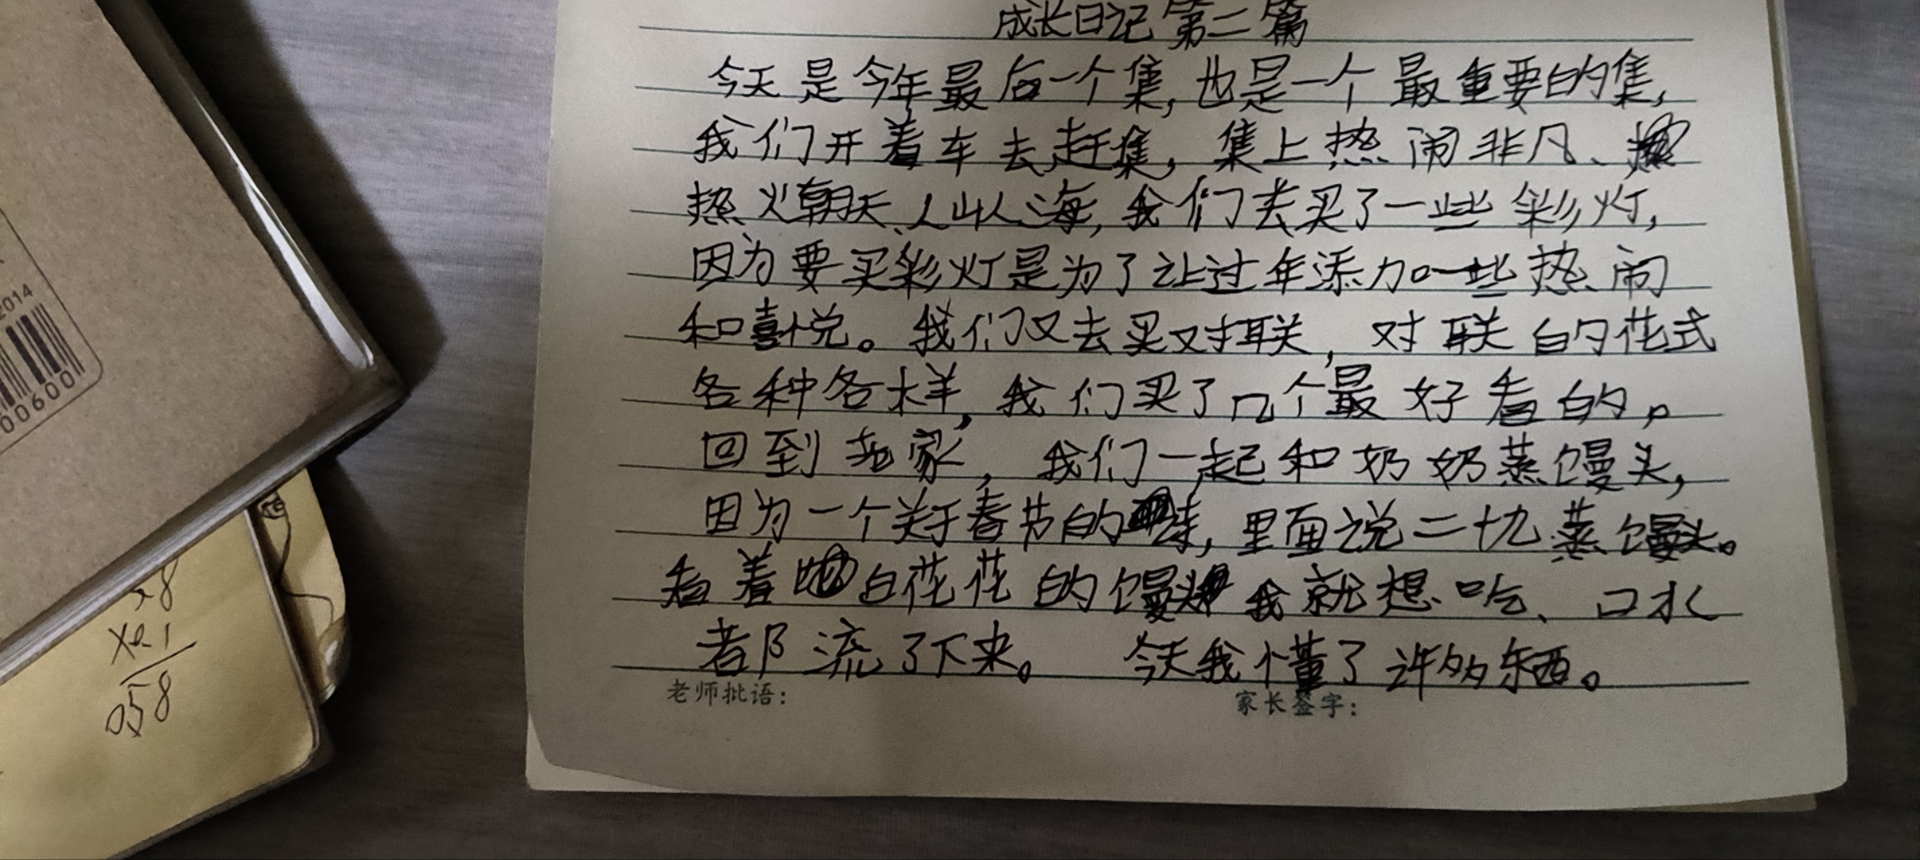 成长日记第二篇
今天是今年最后一个集,也是一个最重要的集,
我们开着车去赶集,集上热闹非凡、
热火朝天、人山人海,我们去买了一些彩灯,
因为要买彩灯是为了让过年添加一些热闹
和喜悦。我们又去买对联,对联的花式
各种各样,我们买了几个最好看的。
回到老家,我们一起和奶奶蒸馒头,
因为一个关于春节的,里面说二十九蒸馒头。
看着白花花的馒头我就想吃、口水
都流了下来。 今天我懂了许多东西。
老师批语: 家长签字:
2014
00600
58
058